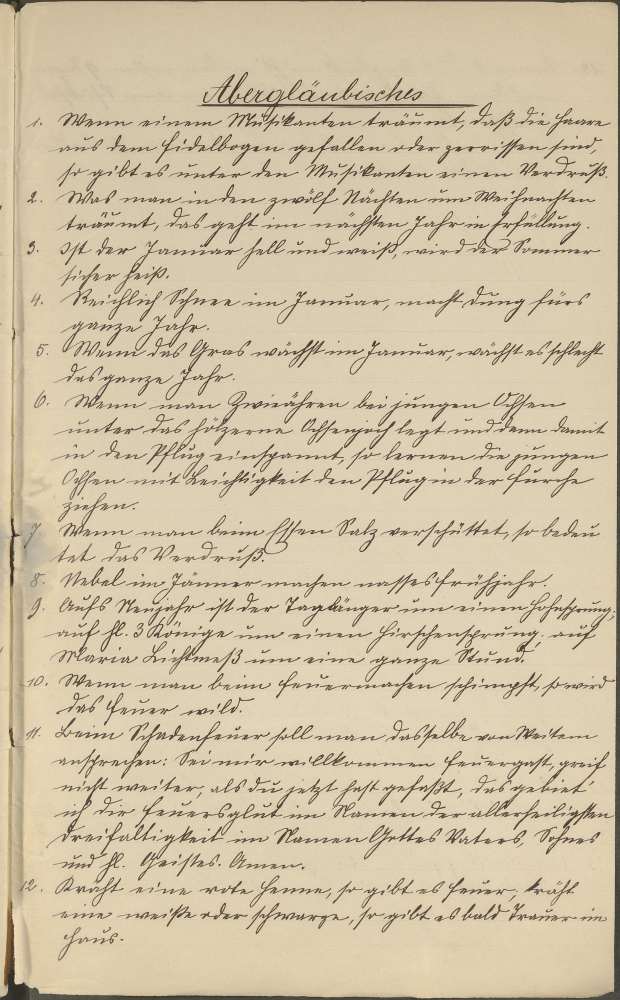 Abergläubisches
1. Wenn einem Musikanten träumt, daß die Haare
aus dem Fidelbogen gefallen oder zerrissen sind,
so gibt es unter den Musikanten einen Verdruß.
2. Was man in den zwölf Nächten um Weihnachten
träumt, das geht im nächsten Jahr in Erfüllung.
3. Ist der Januar hell und weiß, wird der Sommer
sicher heiß.
4. Reichlich Schnee im Januar, macht Dung fürs
ganze Jahr.
5. Wenn das Gras wächst im Januar, wächst es schlecht
das ganze Jahr.
6. Wenn man Zwieähren bei jungen Ochsen
unter das hölzerne Ochsenjoch legt und denn damit
in den Pflug einspannt, so lernen die jungen
Ochsen mit Leichtigkeit den Pflug in der Furche
ziehen.
7 Wenn man beim Essen Salz verschüttet, so bedeu
tet das Verdruß.
8. Nebel im Jänner machen nasses Frühjahr.
9. Aufs Neujahr ist der Tag länger um einen Hohnsprung;
auf hl. 3 Könige um einen Hirschensprung. auf
Maria Lichtmeß um eine ganze Stund.
10. Wenn man beim Feuermachen schimpft, so wird
das Feuer wild.
11. Beim Schadenfeuer soll man dasselbe von Weitem
ansprechen: Sei mir willkommen Feuergast, greif
nicht weiter, als du jetzt hast gefaßt, das gebiet'
ich dir Feuersglut im Namen der allerheiligsten
Dreifaltigkeit im Namen Gottes Vaters, Sohnes
und hl. Geistes. Amen.
12. Kräht eine rote Henne, so gibt es Feuer, kräht
eine weiße oder schwarze, so gibt es bald Trauer im
Haus.